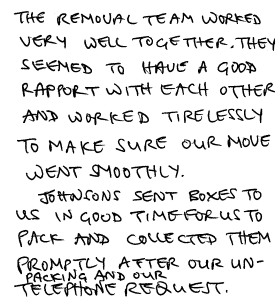 THE REMOVAL TEAM WORKED
VERY WELL TOGETHER. THEY
SEEMED TO HAVE A GOOD
RAPPORT WITH EACH OTHER
AND WORKED TIRELESSLY
TO MAKE SURE OUR MOVE
WENT SMOOTHLY.
JOHNSONS SENT BOXES TO
US IN GOOD TIME FOR US TO
PACK AND COLLECTED THEM
PROMPTLY AFTER OUR UN-
PACKING AND OUR
TELEPHONE REQUEST.